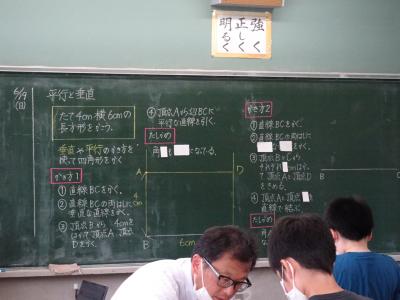 強く
正しく
明るく
6/9
(日)
平行と垂直
たて4cm 横6cmの
長方形をかこう。
垂直や平行のかき方を
使って四角形をかく。
かき方1
① 直線BCをかく。
② 直線BCの両はしに
垂直な直線をかく。
③ 頂点Bから 4cmを
はかって頂点A、頂点
Dをかく。
④ 頂点Aから辺BCに
平行な直線を引く。
たしかめ
角
になっている。
A
D
4
cm
B
6cm
かき方2
① 直線BCをかく。
② 直線BCの両はしに
をかく。
③ 頂点BとCから
それぞれ cmはかっ
て頂点Aと頂点D
をきめる。
④ 頂点Aと頂点
直線で結ぶ。
たしかめ
B